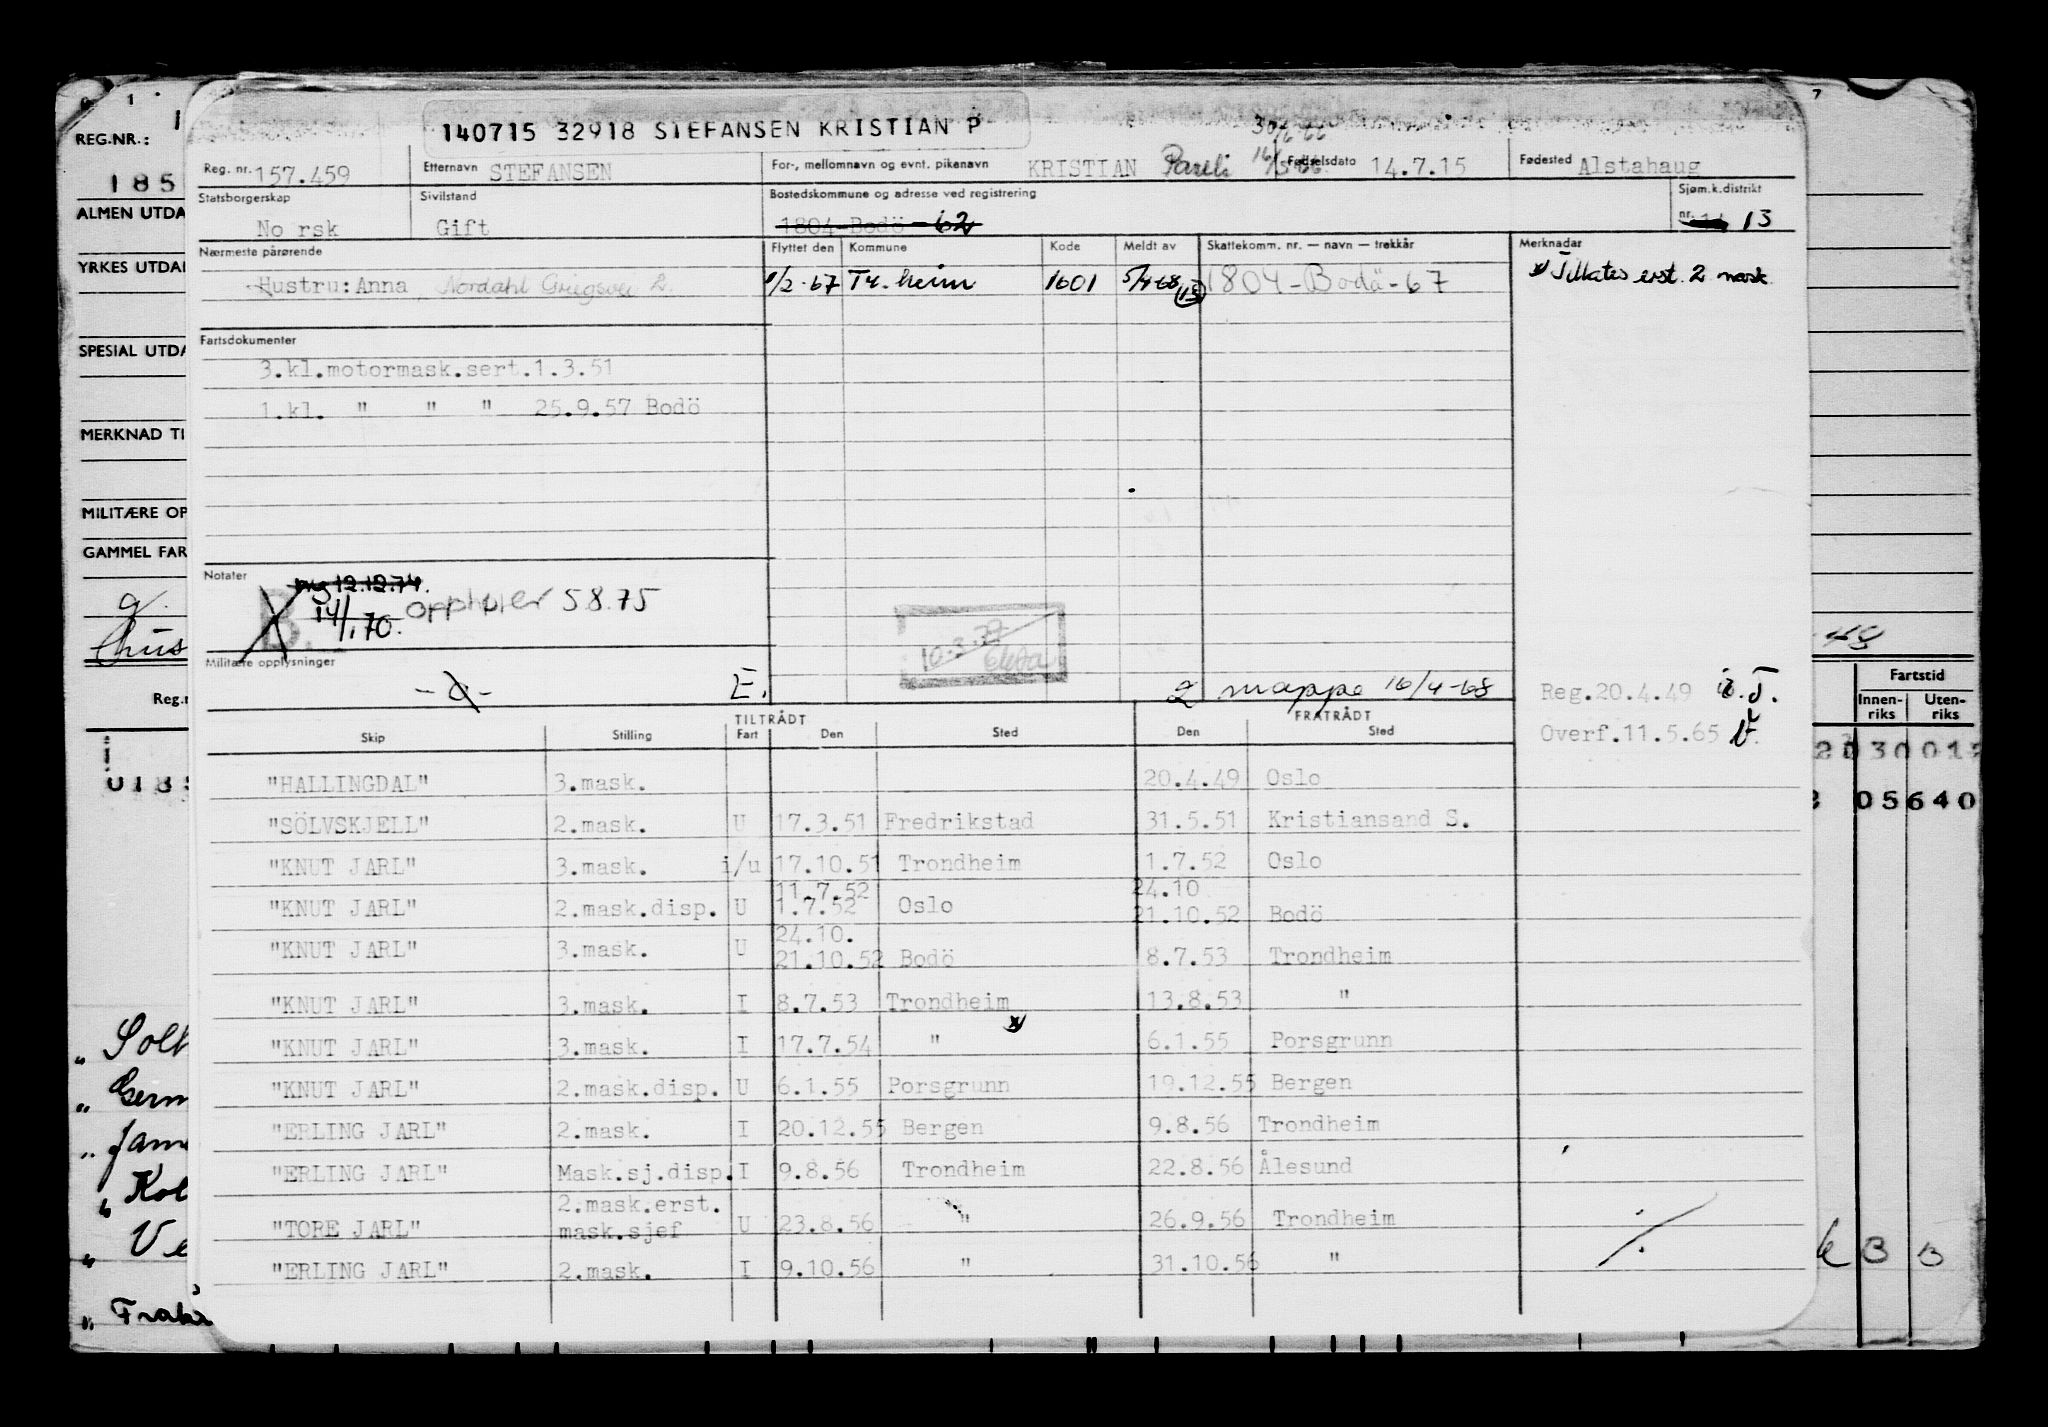 140715 32918 STEFANSEN KRISTIAN P
30/6-66
REG.NR.:
185
ALMEN UTDA
YRKES UTDA
SPESIAL UTDA
MERKNAD TI
MILITÆRE OP
GAMMEL FAR
Reg. nr. 157.459 Etternavn STEFANSEN For-, mellomnavn og evnt. pikenavn KRISTIAN Pareli 16/5-66 Fødselsdato 14.7.15 Fødested Alstahaug
Statsborgerskap Norsk Sivilstand Gift Bostedskommune og adresse ved registrering 1804-Bodö-62 Sjøm.k.distrikt nr. 13
Nærmeste pårørende Flyttet den Kommune Kode Meldt av Skattekomm. nr. — navn — trekkår Merknadar
Hustru: Anna, Nordahl Griegsvei 2. 1/2-67 Tr.heim 1601 5/4-68 (13) 1804-Bodö-67 x) Tillates erst. 2 mask.
Fartsdokumenter
3.kl.motormask.sert.1.3.51
1.kl. " " " 25.9.57 Bodö
Notater
B.
mg 12.12.74.
14/1.70. opphører 5.8.75
10.3.
Militære opplysninger
-a- E. 2 mappe 16/4-68
Reg.20.4.49
Overf.11.5.65
TILTRÅDT FRATRÅDT
Skip Stilling Fart Den Sted Den Sted
"HALLINGDAL" 3.mask. 20.4.49 Oslo
"SÖLVSKJELL" 2.mask. U 17.3.51 Fredrikstad 31.5.51 Kristiansand S.
"KNUT JARL" 3.mask. i/u 17.10.51 Trondheim 1.7.52 Oslo
11.7.52 24.10
"KNUT JARL" 2.mask.disp. U 1.7.52 Oslo 21.10.52 Bodö
24.10.
"KNUT JARL" 3.mask. U 21.10.52 Bodö 8.7.53 Trondheim
"KNUT JARL" 3.mask. I 8.7.53 Trondheim 13.8.53 "
x)
"KNUT JARL" 3.mask. I 17.7.54 " 6.1.55 Porsgrunn
"KNUT JARL" 2.mask.disp. U 6.1.55 Porsgrunn 19.12.55 Bergen
"ERLING JARL" 2.mask. I 20.12.55 Bergen 9.8.56 Trondheim
"ERLING JARL" Mask.sj.disp. I 9.8.56 Trondheim 22.8.56 Ålesund
2.mask.erst.
"TORE JARL" mask.sjef U 23.8.56 " 26.9.56 Trondheim
"ERLING JARL" 2.mask. I 9.10.56 " 31.10.56 "
Reg.n
018
Fartstid
Innen-riks Uten-riks
030 012
05 640